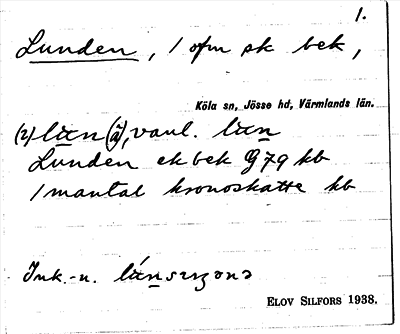 1.
Lunden, 1 ofm sk bek,
Köla sn, Jösse hd, Värmlands län.
(2) lun (ã), vanl. lun
Lunden ek bek G79 kb
1 mantal kronoskatte kb
Ink.-n.
ELOV SILFORS 1938.